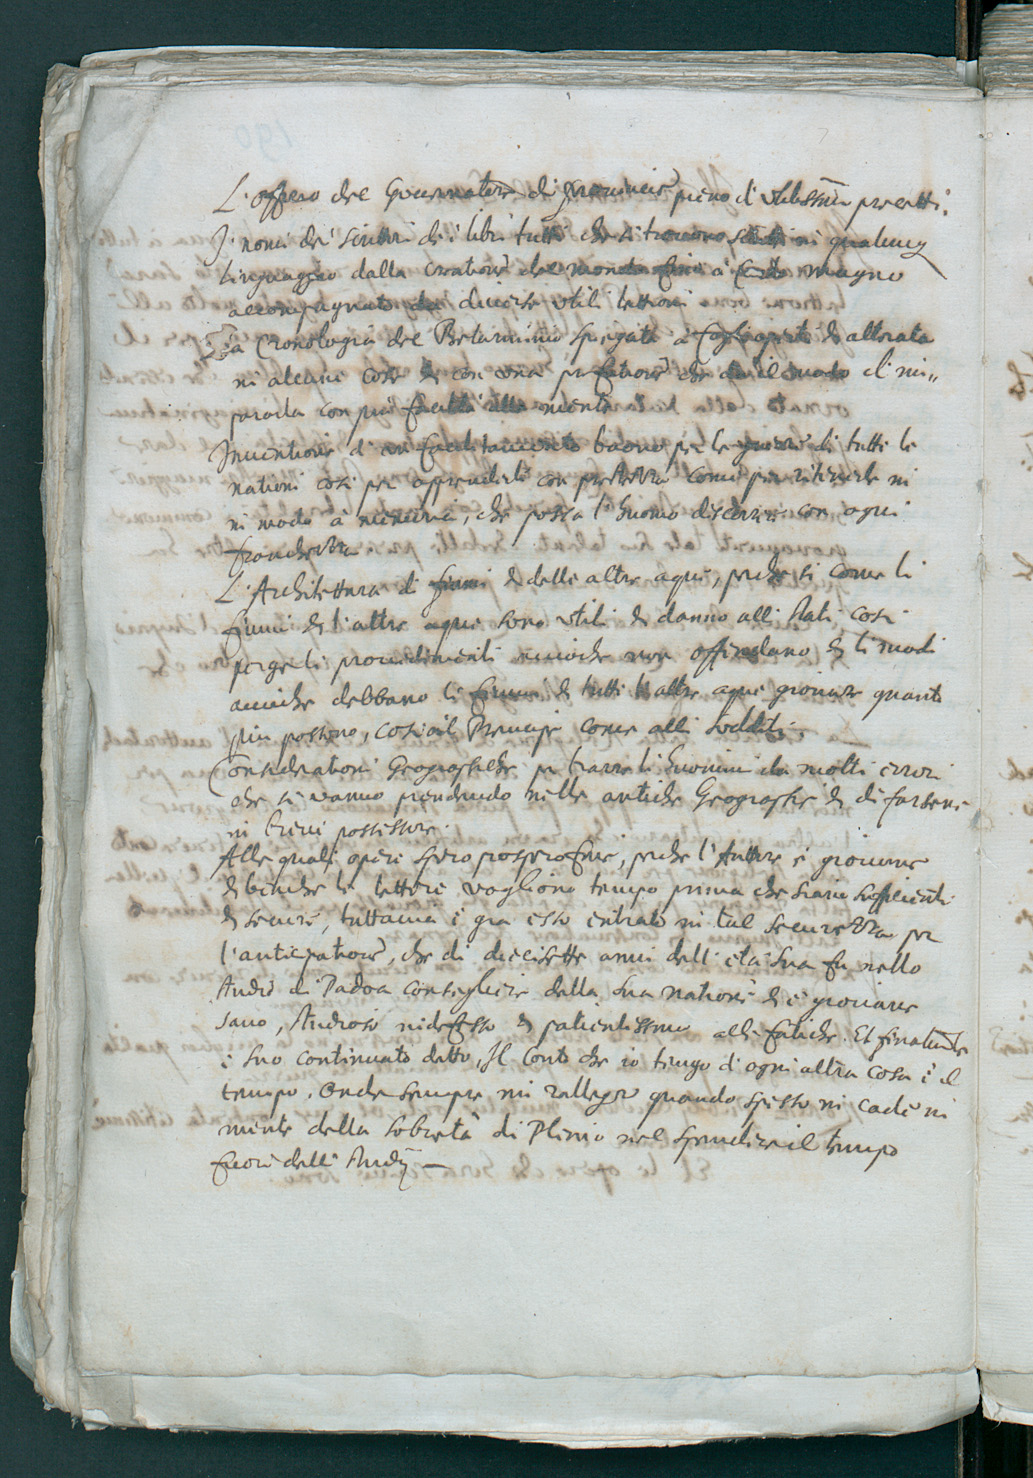 L'offitio del Gouernatore di Prouincie pieno d'utilissimi precetti.
I nomi de' scrittori de i libri tutti che si trouono scritti in qualunq
linguaggio dalla creatione del mondo fino à Carlo Magno
accompagnato da diuerse utili lettioni
La Cronologia del Belarminio spiegata a foglio aperto et alterata
in alcune cose et con una prefatione che dà il modo d'im=
pararla con più facilità alla mente
Inuentione d'un facilitamento buono per le guerre di tutte le
nationi cosi per apprenderle con prestezza come per ritenerle in
in modo à memoria, che possa l'huomo discorrere con ogni
franchezza
L'Architettura di fiumi et delle altre aque, perche si come li
fiumi et l'altre aque sono utili et danno alli stati, cosi
porge li prouedimenti accioche non offendano et li modi
accioche debbano li fiumi et tutte l'altre aque giouare quanto
più possono, cosi al Prencipe come alli sudditi.
Considerationi Geografiche per trarre li huomini da molti errori
che si uanno prendendo nelle antiche Geografie et di farsene
in breui possessore.
Alle quali opere spero prospero fine, perche l'Auttore è giouine
et benche le lettere vogliono tempo prima che siano sufficienti
et secure, tuttauia è gia esso entrato in tal securezza per
l'anticipatione, che di diecisette anni dell'età sua fu nello
studio di Padoa consigliere della sua natione et è giouane
sano, studioso indefesso et patientissimo alle fatiche. Et finalmente
è suo continuato detto, Il conto che io tengo d'ogni altra cosa è il
tempo. Onde sempre mi rallegro quando spesso mi cade in
mente della sobrietà di Plinio nel spendere il tempo
fuori delli studij